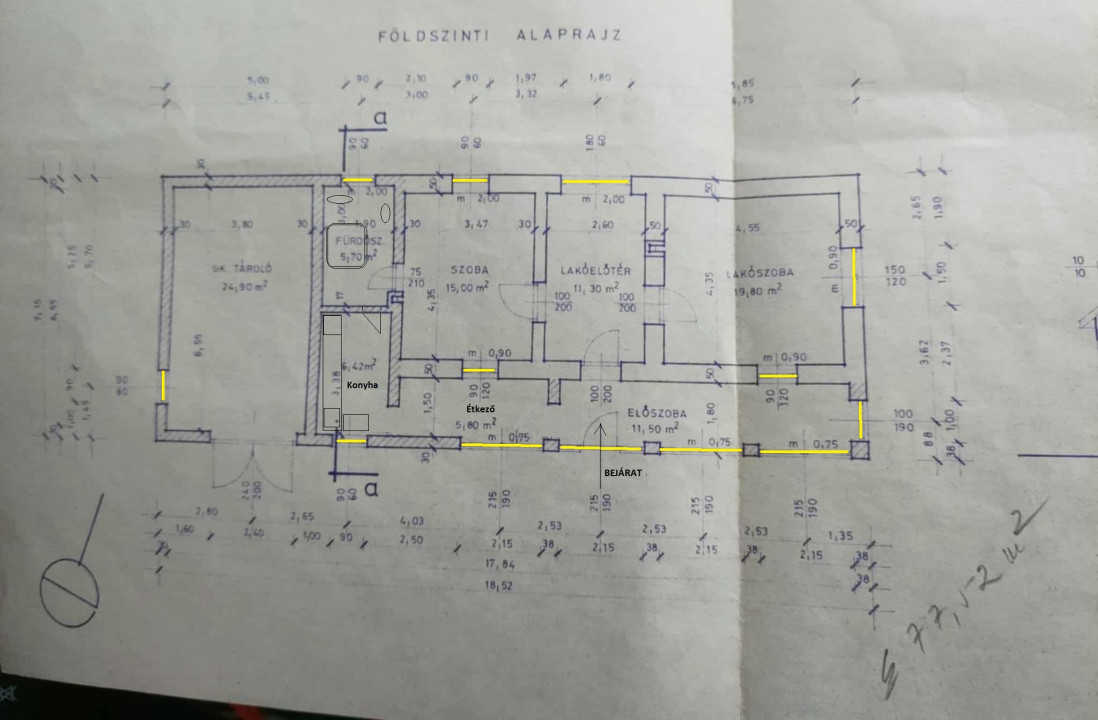 FÖLDSZINTI ALAPRAJZ
5,00 90 2,10 90 1,97 1,80 5,85
5,45 3,00 3,32 6,75
a
90 60
90 60
180 60
30
2,00
m 2,00
m 2,00
50
50
30 3,80 30 1,90 30 3,47 30 2,60 50 4,55 50
2,65 1,90
FÜRDŐSZ.
5,70 m²
GK. TÁROLÓ
24,90 m²
SZOBA
15,00 m²
LAKÓELŐTÉR
11,30 m²
LAKÓSZOBA
19,80 m²
75
210
100
200
100
200
m 0,90
150
120
1,50
7,15 6,55 5,25 5,70
17
4,35
4,35
6,55
3,38
6,42 m²
Konyha
m 0,90
m 0,90
50
50
3,62 2,37
90
60
30 1,00 90 1,45
90 120
100 200
90 120
1,50
Étkező
5,80 m²
ELŐSZOBA
11,50 m²
1,80
100
190
88 1,00 38
30
m 0,75
m 0,75
m 0,75
BEJÁRAT
240 200
90 60
a
215 190
215 190
215 190
215 190
2,80 2,65 4,03 2,53 2,53 2,53 1,35
1,60 2,40 1,00 90 2,50 2,15 38 2,15 38 2,15 38 2,15 38
30
17,84
38
18,52
10
10